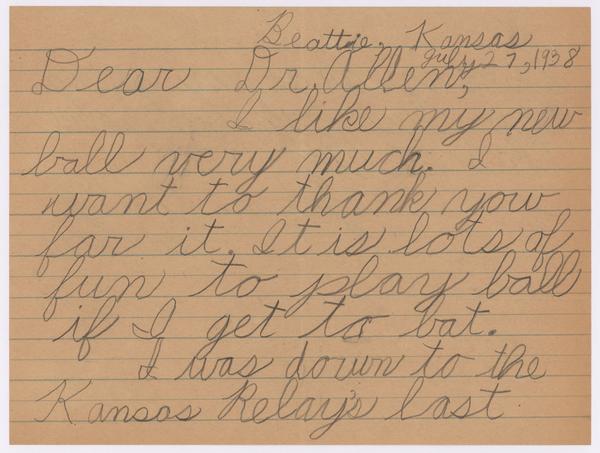 Beattie, Kansas
July 27, 1938
Dear Dr. Allen,
I like my new
ball very much. I
want to thank you
far it. It is lots of
fun to play ball
if I get to bat.
I was down to the
Kansas Relay's last